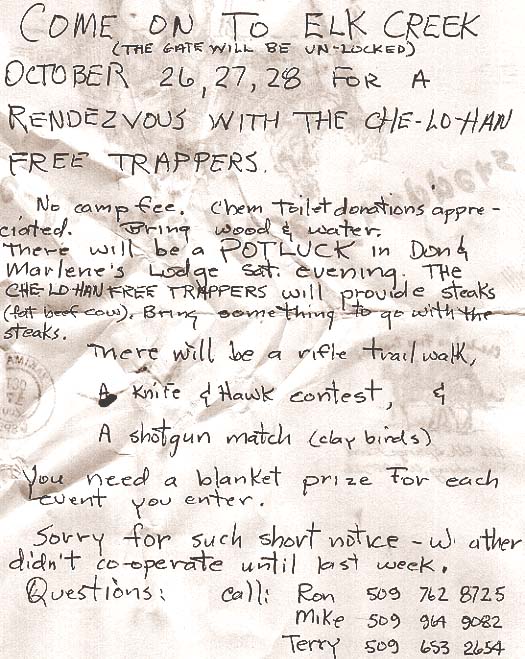 COME ON TO ELK CREEK
(THE GATE WILL BE UN-LOCKED)
OCTOBER 26, 27, 28 FOR A
RENDEZVOUS WITH THE CHE-LO-HAN
FREE TRAPPERS.
No camp fee. Chem toilet donations appre-
ciated. Bring wood & water.
There will be a POTLUCK in Don &
Marlene's Lodge Sat. evening. THE
CHE-LO-HAN FREE TRAPPERS will provide steaks
(fat beef cow). Bring something to go with the
steaks.
There will be a rifle trail walk,
A Knife & Hawk contest, &
A shotgun match (clay birds)
You need a blanket prize for each
event you enter.
Sorry for such short notice - w ather
didn't co-operate until last week.
Questions: call: Ron 509 762 8725
Mike 509 964 9082
Terry 509 653 2654